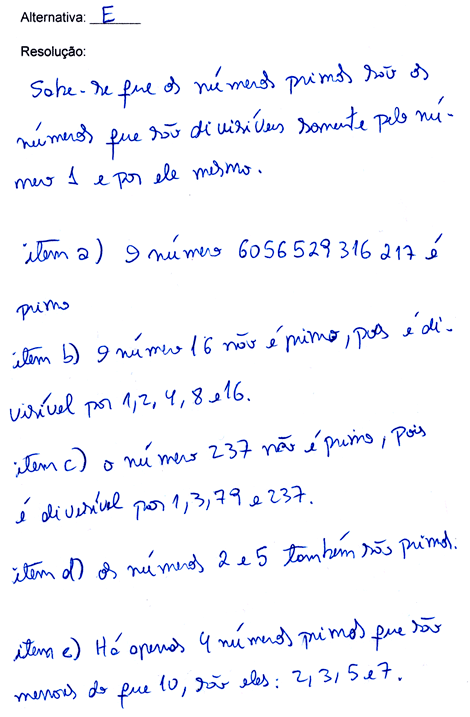 Alternativa: E
Resolução:
Sabe-se que os números primos são os
números que são divisíveis somente pelo nú-
mero 1 e por ele mesmo.
item a) O número 6056529316217 é
primo
item b) O número 16 não é primo, pois é di-
visível por 1, 2, 4, 8 e 16.
item c) o número 237 não é primo, pois
é divisível por 1, 3, 79 e 237.
item d) os números 2 e 5 também são primos.
item e) Há apenas 4 números primos que são
menores do que 10, são eles: 2, 3, 5 e 7.